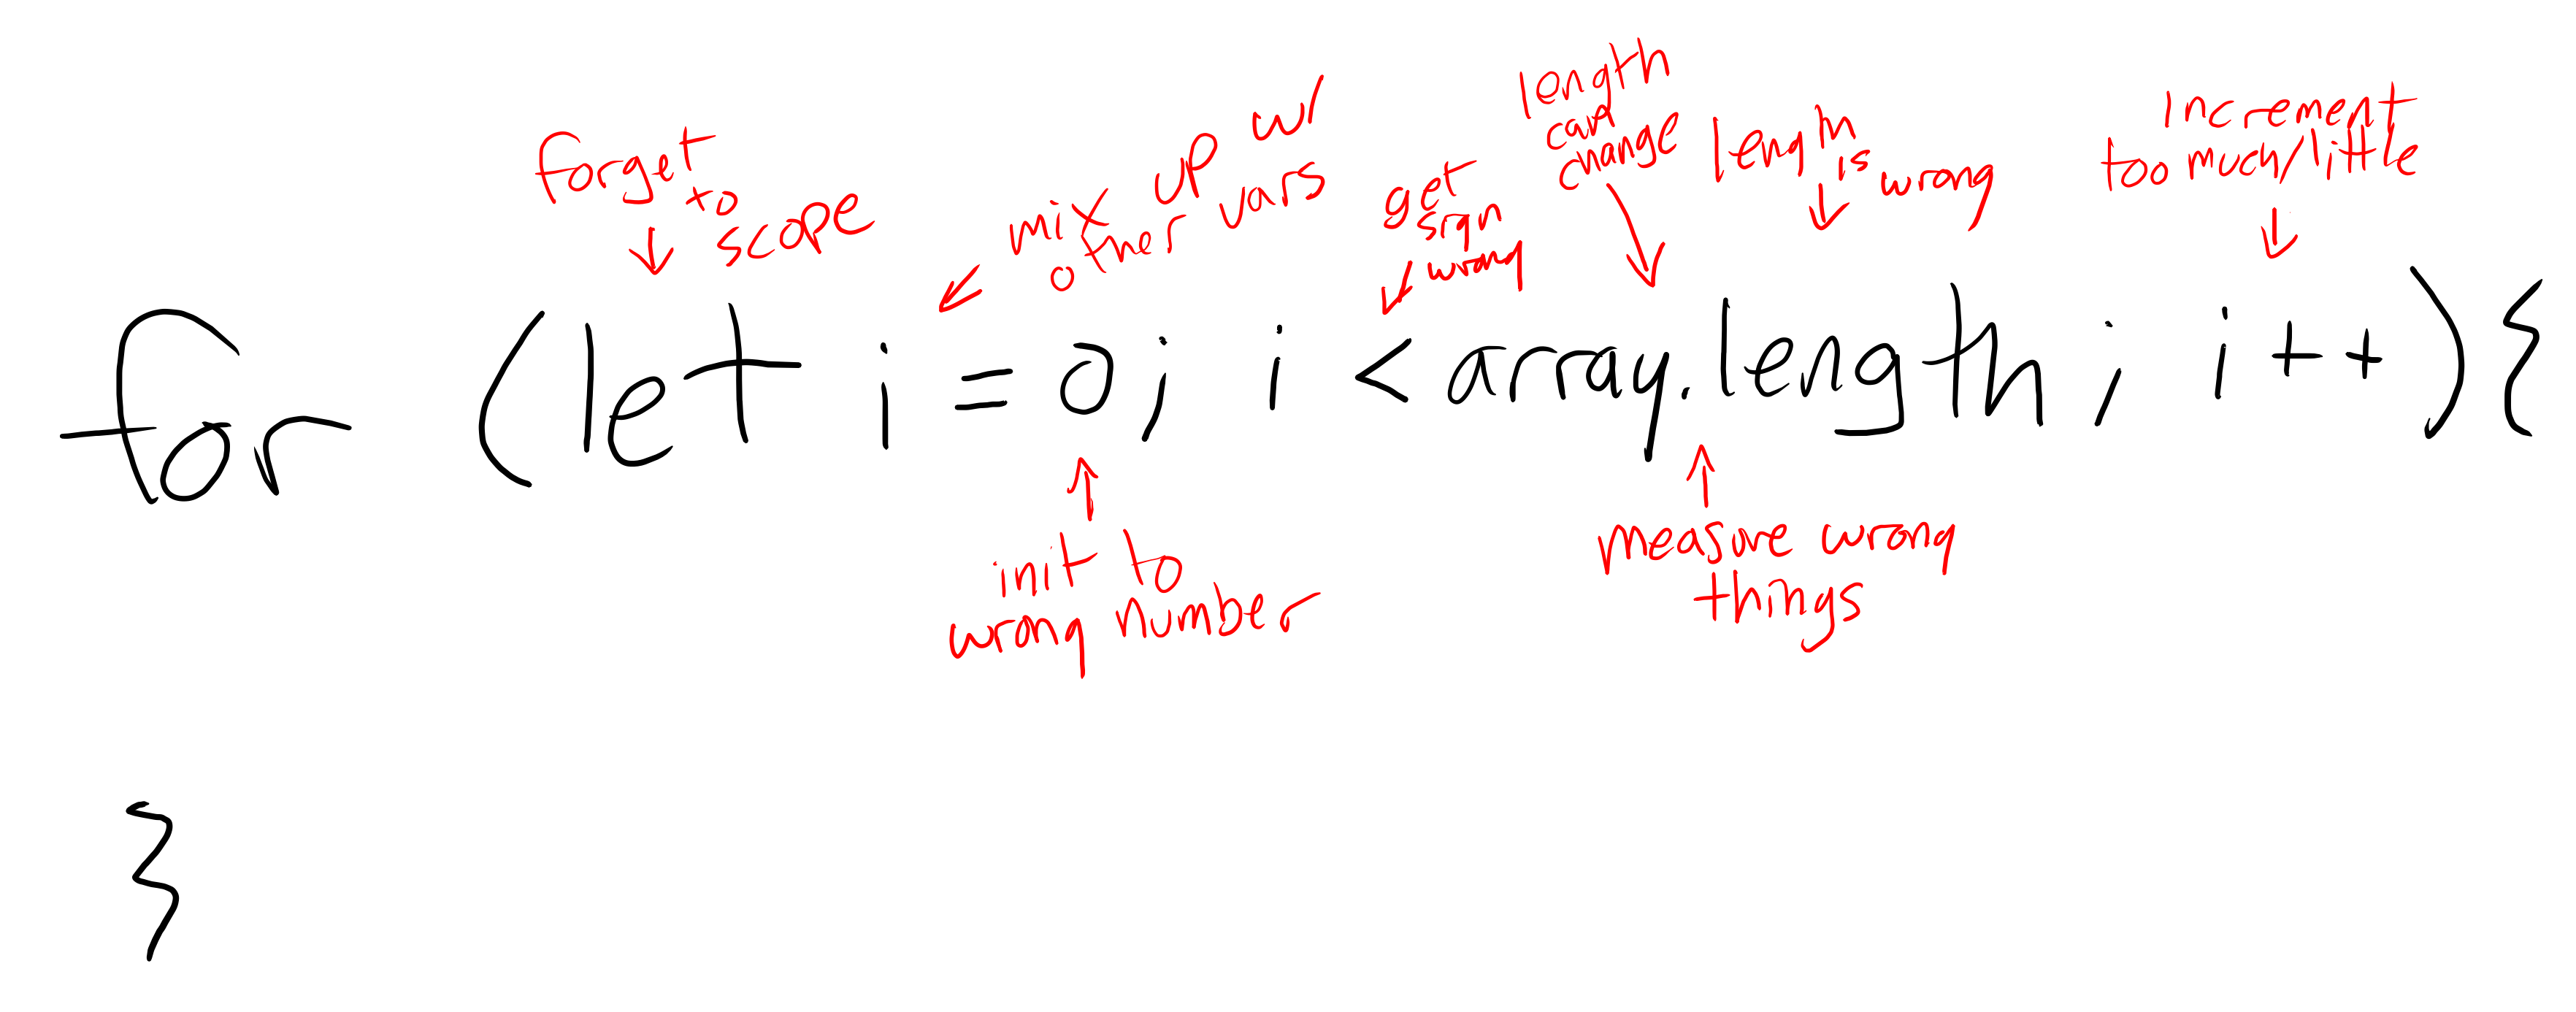 forget
to
scope
mix up w/
other vars
get
sign
wrong
length
can
change
length
is
wrong
increment
too much/little
for (let i = 0; i < array.length; i++){
init to
wrong number
measure wrong
things
}